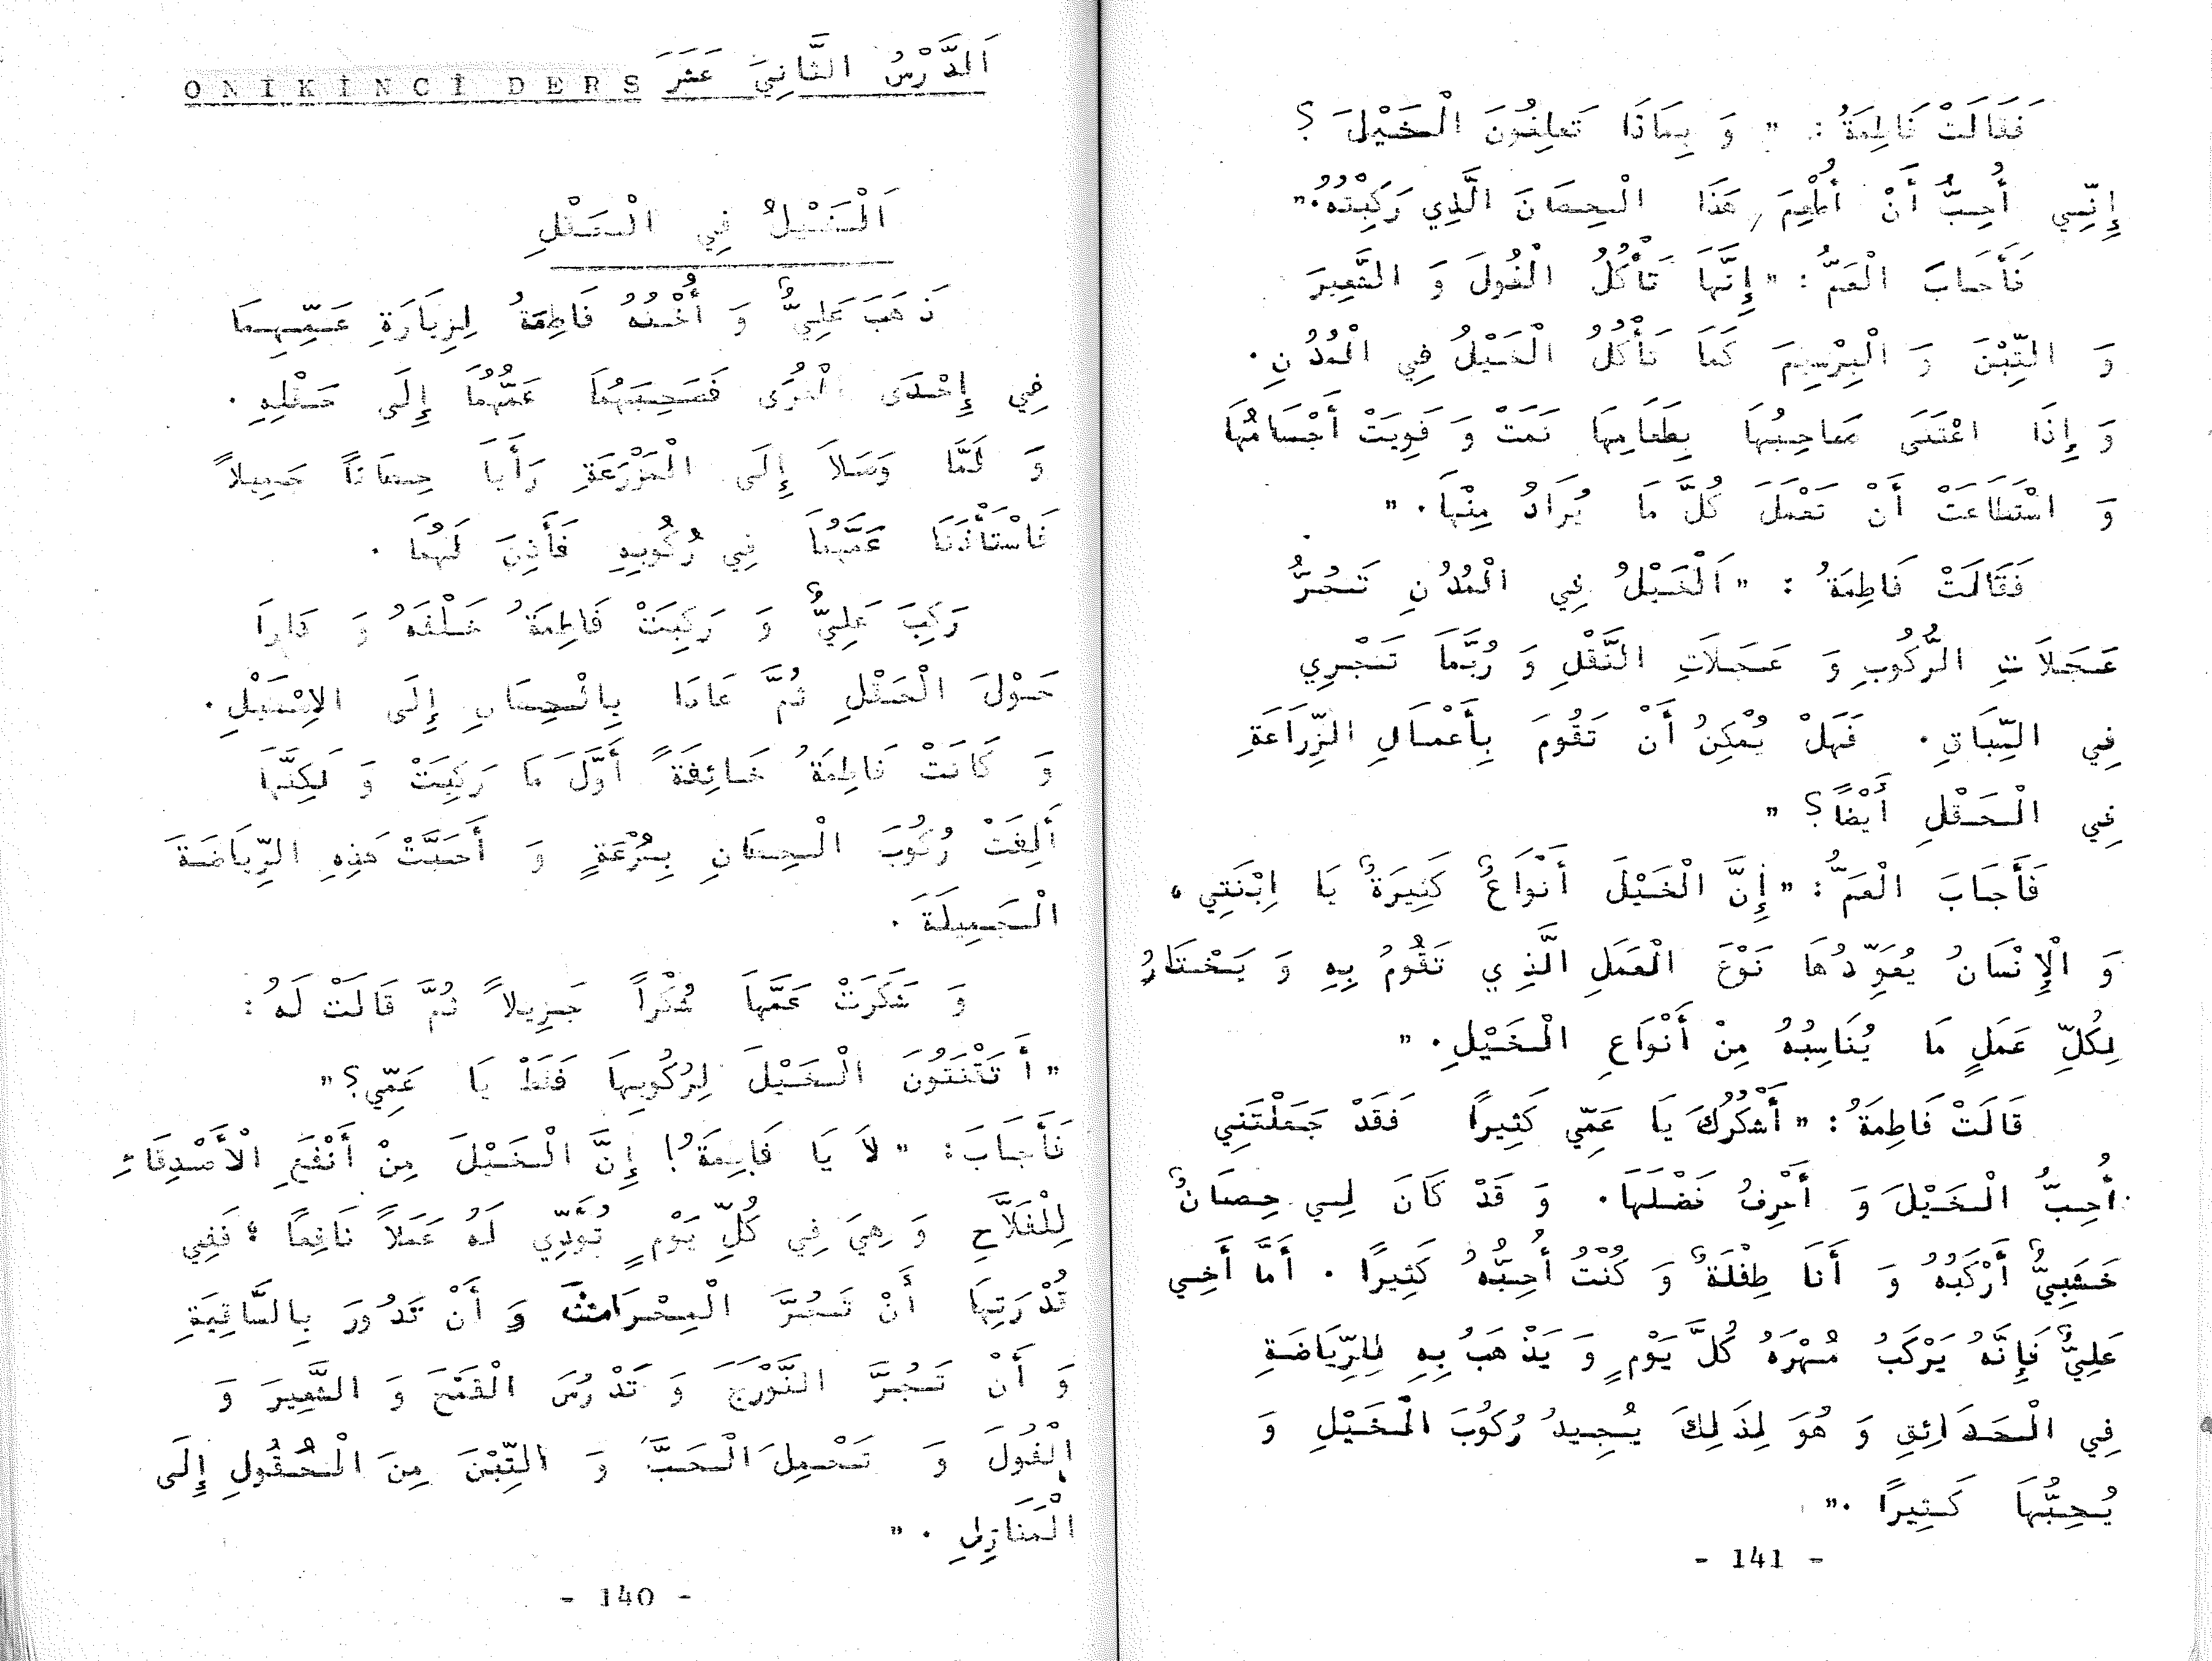 اَلدَّرْسُ الثَّانِيَ عَشَرَ ONİKİNCİ DERS
اَلْخَيْلُ فِي الْحَقْلِ
ذَهَبَ عَلِيٌّ وَ أُخْتُهُ فَاطِمَةُ لِزِيَارَةِ عَمِّهِمَا
فِي إِحْدَى الْقُرَى فَصَحِبَهُمَا عَمُّهُمَا إِلَى حَقْلِهِ .
وَ لَمَّا وَصَلاَ إِلَى الْمَزْرَعَةِ رَأَيَا حِصَانًا جَمِيلاً
فَاسْتَأْذَنَا عَمَّهُمَا فِي رُكُوبِهِ فَأَذِنَ لَهُمَا .
رَكِبَ عَلِيٌّ وَ رَكِبَتْ فَاطِمَةُ خَلْفَهُ وَ دَارَا
حَوْلَ الْحَقْلِ ثُمَّ عَادَا بِالْحِصَانِ إِلَى الاِصْطَبْلِ .
وَ كَانَتْ فَاطِمَةُ خَائِفَةً أَوَّلَ مَا رَكِبَتْ وَ لَكِنَّهَا
أَلِفَتْ رُكُوبَ الْحِصَانِ بِسُرْعَةٍ وَ أَحَبَّتْ هَذِهِ الرِّيَاضَةَ
الْجَمِيلَةَ .
وَ شَكَرَتْ عَمَّهَا شُكْرًا جَزِيلاً ثُمَّ قَالَتْ لَهُ :
" أَ تَقْتَنُونَ الْخَيْلَ لِرُكُوبِهَا فَقَطْ يَا عَمِّي؟ "
فَأَجَابَ : " لاَ يَا فَاطِمَةُ! إِنَّ الْخَيْلَ مِنْ أَنْفَعِ الْأَصْدِقَاءِ
لِلْفَلاَّحِ وَ هِيَ فِي كُلِّ يَوْمٍ تُؤَدِّي لَهُ عَمَلاً نَافِعًا ؛ فَفِي
قُدْرَتِهَا أَنْ تَجُرَّ الْمِحْرَاثَ وَ أَنْ تَدُورَ بِالسَّاقِيَةِ
وَ أَنْ تَجُرَّ النَّوْرَجَ وَ تَدْرُسَ الْقَمْحَ وَ الشَّعِيرَ وَ
الْفُولَ وَ تَحْمِلَ الْحَبَّ وَ التِّبْنَ مِنَ الْحُقُولِ إِلَى
الْمَنَازِلِ . "
- 140 -
فَقَالَتْ فَاطِمَةُ : " وَ بِمَاذَا تَعْلِفُونَ الْخَيْلَ ؟
إِنِّي أُحِبُّ أَنْ أُطْعِمَ هَذَا الْحِصَانَ الَّذِي رَكِبْتُهُ."
فَأَجَابَ الْعَمُّ : " إِنَّهَا تَأْكُلُ الْفُولَ وَ الشَّعِيرَ
وَ التِّبْنَ وَ الْبِرْسِيمَ كَمَا تَأْكُلُ الْخَيْلُ فِي الْمُدُنِ .
وَ إِذَا اعْتَنَى صَاحِبُهَا بِطَعَامِهَا نَمَتْ وَ قَوِيَتْ أَجْسَامُهَا
وَ اسْتَطَاعَتْ أَنْ تَعْمَلَ كُلَّ مَا يُرَادُ مِنْهَا . "
فَقَالَتْ فَاطِمَةُ : " اَلْخَيْلُ فِي الْمُدُنِ تَجُرُّ
عَجَلاَتِ الرُّكُوبِ وَ عَجَلاَتِ النَّقْلِ وَ رُبَّمَا تَجْرِي
فِي السِّبَاقِ . فَهَلْ يُمْكِنُ أَنْ تَقُومَ بِأَعْمَالِ الزِّرَاعَةِ
فِي الْحَقْلِ أَيْضًا؟ "
فَأَجَابَ الْعَمُّ : " إِنَّ الْخَيْلَ أَنْوَاعٌ كَثِيرَةٌ يَا اِبْنَتِي ،
وَ الْإِنْسَانُ يُعَوِّدُهَا نَوْعَ الْعَمَلِ الَّذِي تَقُومُ بِهِ وَ يَخْتَارُ
لِكُلِّ عَمَلٍ مَا يُنَاسِبُهُ مِنْ أَنْوَاعِ الْخَيْلِ . "
قَالَتْ فَاطِمَةُ : " أَشْكُرُكَ يَا عَمِّي كَثِيرًا فَقَدْ جَعَلْتَنِي
أُحِبُّ الْخَيْلَ وَ أَعْرِفُ فَضْلَهَا . وَ قَدْ كَانَ لِي حِصَانٌ
خَشَبِيٌّ أَرْكَبُهُ وَ أَنَا طِفْلَةٌ وَ كُنْتُ أُحِبُّهُ كَثِيرًا . أَمَّا أَخِي
عَلِيٌّ فَإِنَّهُ يَرْكَبُ مُهْرَهُ كُلَّ يَوْمٍ وَ يَذْهَبُ بِهِ لِلرِّيَاضَةِ
فِي الْحَدَائِقِ وَ هُوَ لِذَلِكَ يُجِيدُ رُكُوبَ الْخَيْلِ وَ
يُحِبُّهَا كَثِيرًا . "
- 141 -